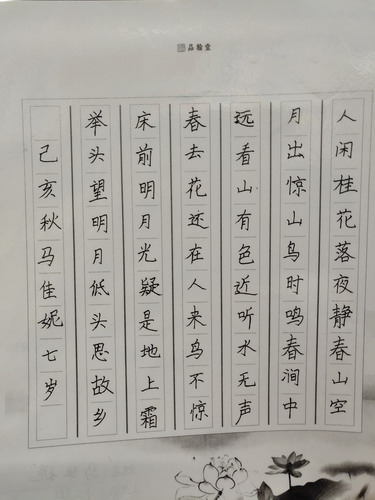 品翰堂
人闲桂花落夜静春山空
月出惊山鸟时鸣春涧中
远看山有色近听水无声
春去花还在人来鸟不惊
床前明月光疑是地上霜
举头望明月低头思故乡
己亥秋马佳妮七岁